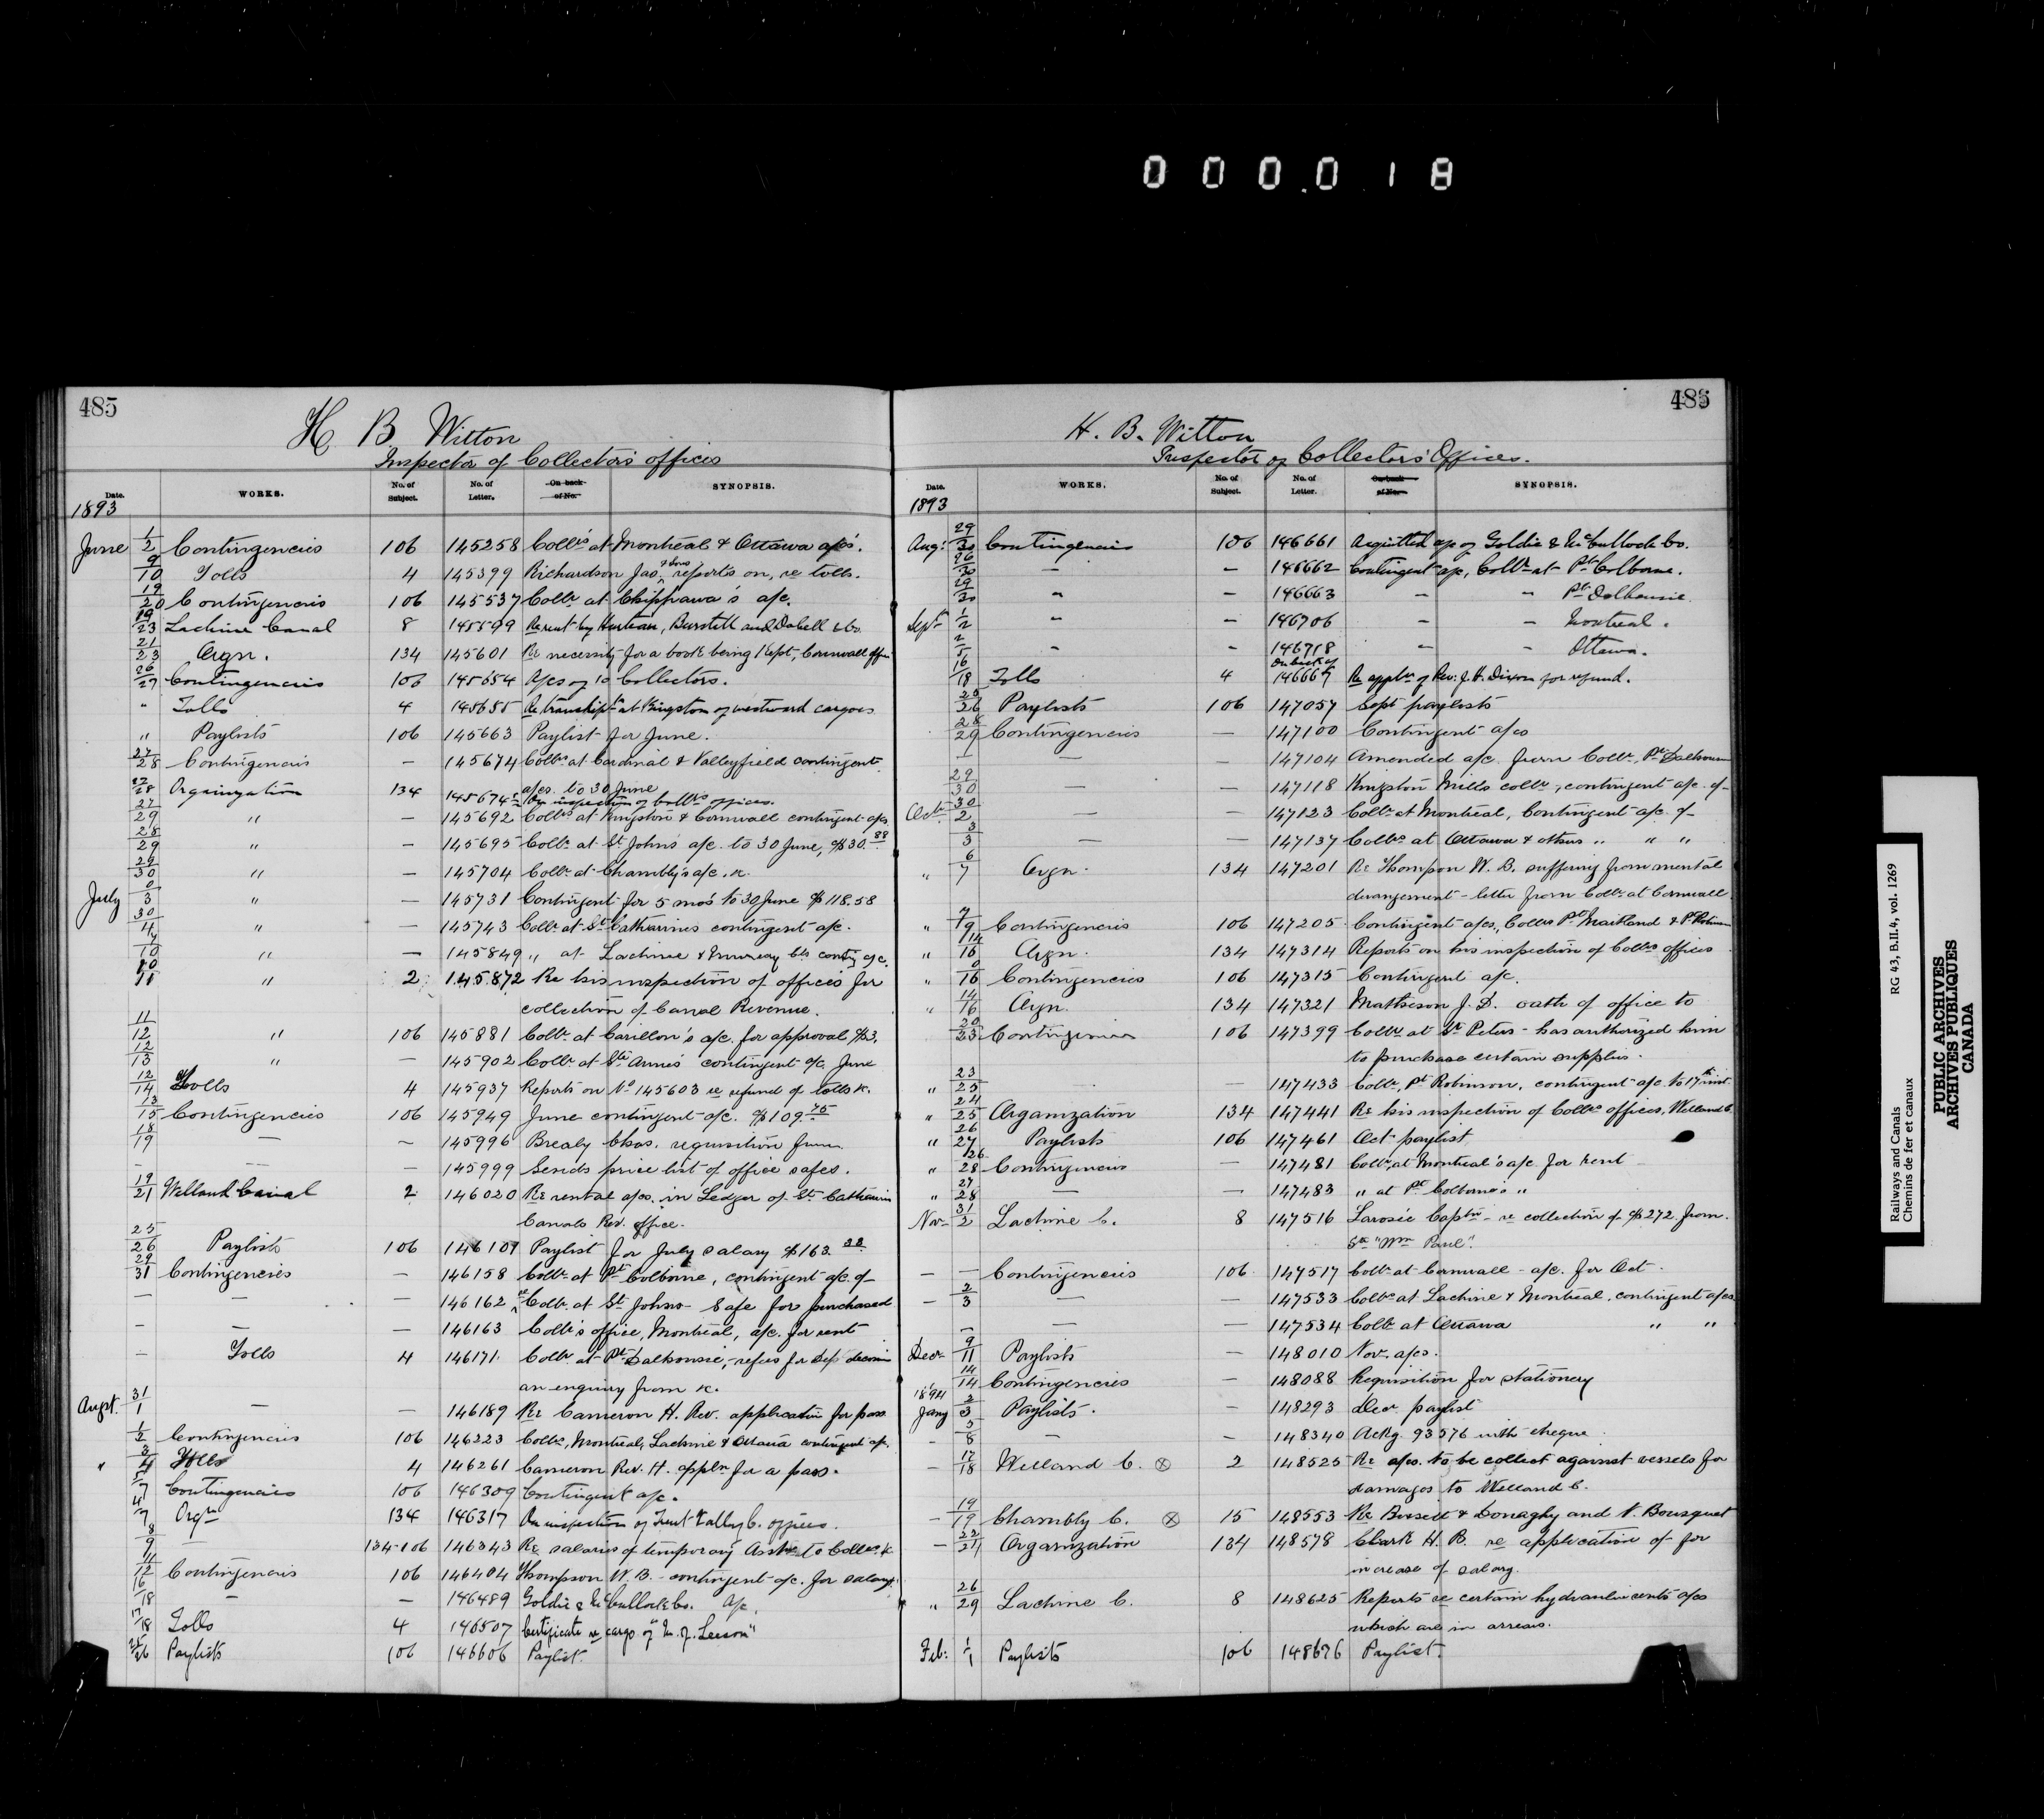 000.018
485
H. B. Witton
Inspector of Collectors' offices
Date. WORKS. No. of Subject. No. of Letter. On back of No. SYNOPSIS.
1893
June 1/2 Contingencies 106 145258 Collrs at Montreal & Ottawa a/cs.
9/10 Tolls 4 145399 Richardson Jas. & Sons reports on, re tolls.
19/20 Contingencies 106 145537 Collr at Chippawa's a/c.
19/23 Lachine Canal 8 145599 Re rent by Hurteau, Burstall and Dobell & Co.
21/23 Orgn. 134 145601 Re necessity for a book being kept, Cornwall offi
26/27 Contingencies 106 145654 A/cs of 10 Collectors.
" Tolls 4 145655 Re transhipt at Kingston of westward cargoes
" Paylists 106 145663 Paylist for June.
27/28 Contingencies — 145674 Collrs at Cardinal & Valleyfield contingent
a/cs. to 30 June
27/28 Organization 134 145674½ On inspection of Collrs offices.
27/29 " — 145692 Collrs at Kingston & Cornwall contingent a/cs
28/29 " — 145695 Collr at St Johns a/c to 30 June, $30.88
29/30 " — 145704 Collr at Chambly's a/c. &c.
July 0/3 " — 145731 Contingent for 5 mos to 30 June $118.58
30/4 " — 145743 Collr at St Catharines contingent a/c.
4/10 " — 145849 " at Lachine & Murray Cls conty a/c.
10/11 " 2 145872 Re his inspection of offices for
collection of Canal Revenue.
11/12 " 106 145881 Collr at Carillon's a/c. for approval $3.
12/13 " — 145902 Collr at Ste Anne's contingent a/c June
12/14 Tolls 4 145937 Reports on No 145603 re refund of tolls &c.
13/15 Contingencies 106 145949 June contingent a/c. $109.75
18/19 — — 145996 Brealy Chas. requisition from
— — — 145999 Sends price list of office safes.
19/21 Welland Canal 2 146020 Re rental a/cs. in Ledger of St Catharines
Canals Rev. office.
25/26 Paylists 106 146109 Paylist for July salary $163.33
29/31 Contingencies — 146158 Collr at Pt Colborne, contingent a/c of —
— — — 146162 re Collr at St Johns Safe for purchased
— — — 146163 Collr's office, Montreal, a/c. for rent
— Tolls 4 146171 Collr at Pt Dalhousie, refers for Dept decision
an enquiry from &c.
Augt. 31/1 — — 146189 Re Cameron H. Rev. application for pass
1/2 Contingencies 106 146223 Collrs, Montreal, Lachine & Ottawa contingent a/c.
" 3/4 Tolls 4 146261 Cameron Rev. H. appln for a pass.
5/7 Contingencies 106 146309 Contingent a/c.
4/7 Orgn 134 146317 On inspection of Trent Valley C. offices.
8/9 — 134-106 146343 Re salaries of temporary Assts to Collrs &c
11/12 Contingencies 106 146404 Thompson W. B. - contingent a/c. for salary.
16/18 — — 146489 Goldie & McCulloch Co. A/c.
17/18 Tolls 4 146507 Certificate re cargo of "M. J. Leeson"
25/26 Paylists 106 146606 Paylist.
486
H. B. Witton
Inspector of Collectors' Offices.
Date. WORKS. No. of Subject. No. of Letter. On back of No. SYNOPSIS.
1893
Aug. 29/30 Contingencies 106 146661 Acquitted a/c of Goldie & McCulloch Co.
26/30 — — 146662 Contingent a/c, Collr at Pt Colborne.
29/30 " — 146663 — " Pt Dalhousie.
Sept 1/2 " — 146706 — — Montreal.
2/5 " — 146718 — — Ottawa.
On back of
16/18 Tolls 4 146667 Re appln of Rev. J. H. Dixon for refund.
25/26 Paylists 106 147057 Sept paylists
28/29 Contingencies — 147100 Contingent a/cs
— — — 147104 Amended a/c. from Collr, Pt Dalhousie
29/30 — — 147118 Kingston Mills collr, contingent a/c. of —
Oct. 30/2 — — 147123 Collr at Montreal, Contingent a/c. of —
3/3 — — 147137 Collrs at Ottawa & others " " "
" 6/7 Orgn. 134 147201 Re Thompson W. B. suffering from mental
derangement - letter from Collr at Cornwall
" 7/9 Contingencies 106 147205 Contingent a/cs, Collrs Pt Maitland & Pt Robinson
" 14/16 Orgn. 134 147314 Reports on his inspection of Collrs offices
" 0/16 Contingencies 106 147315 Contingent a/c.
" 14/16 Orgn. 134 147321 Matheson J. D. oath of office to
20/23 Contingencies 106 147399 Collr at St Peters - has authorized him
to purchase certain supplies.
" 23/25 — 147433 Collr, Pt Robinson, contingent a/c to 17th inst.
" 24/25 Organization 134 147441 Re his inspection of Collrs offices, Welland C.
" 26/27 Paylists 106 147461 Oct. paylist
" 26/28 Contingencies — 147481 Collr at Montreal's a/c for rent
" 27/28 — — 147483 " at Pt Colborne's "
Nov. 31/2 Lachine C. 8 147516 Larosée Captn - re collection of $272 from
Str "Wm Paul".
— — Contingencies 106 147517 Collr at Cornwall - a/c. for Oct.
— 2/3 — — 147533 Collrs at Lachine & Montreal, contingent a/cs
— — — 147534 Collr at Ottawa " "
Decr 9/11 Paylists — 148010 Nov. a/cs.
14/14 Contingencies — 148088 Requisition for stationery
1894
Jany 2/3 Paylists. — 148293 Decr paylist
— 5/8 — — 148340 Ackg. 93576 with cheque.
— 17/18 Welland C. ⊗ 2 148525 Re a/cs. to be collect against vessels for
damages to Welland C.
— 19/19 Chambly C. ⊗ 15 148553 Re Bissett & Donaghy and N. Bousquet
— 22/24 Organization 134 148578 Clark H. B. re application of for
increase of salary.
" 26/29 Lachine C. 8 148625 Reports re certain hydraulic rents a/cs
which are in arrears.
Feb. 1/1 Paylists 106 148676 Paylist.
Railways and Canals RG 43, B.II.4, vol. 1269
Chemins de fer et canaux
PUBLIC ARCHIVES
ARCHIVES PUBLIQUES
CANADA